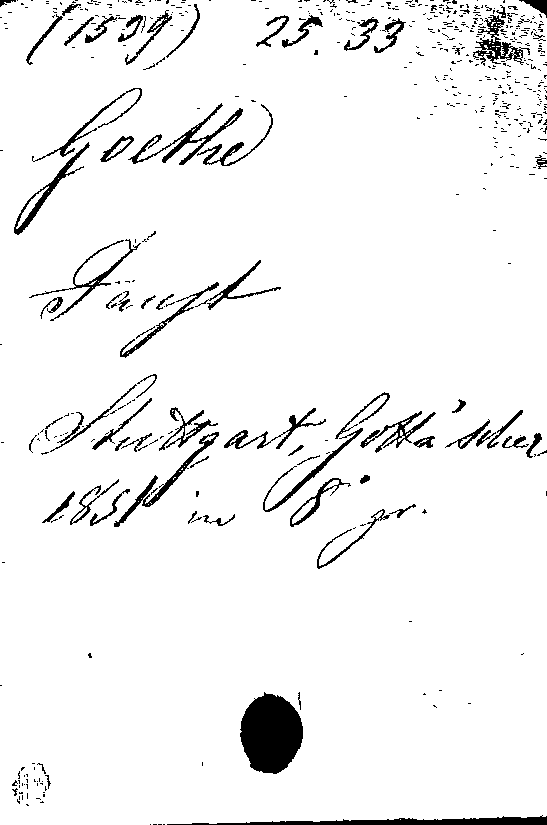 (1539) 25. 33
Goethe
Faust
Stuttgart, Gotta'scher
1851 in 8° gr.